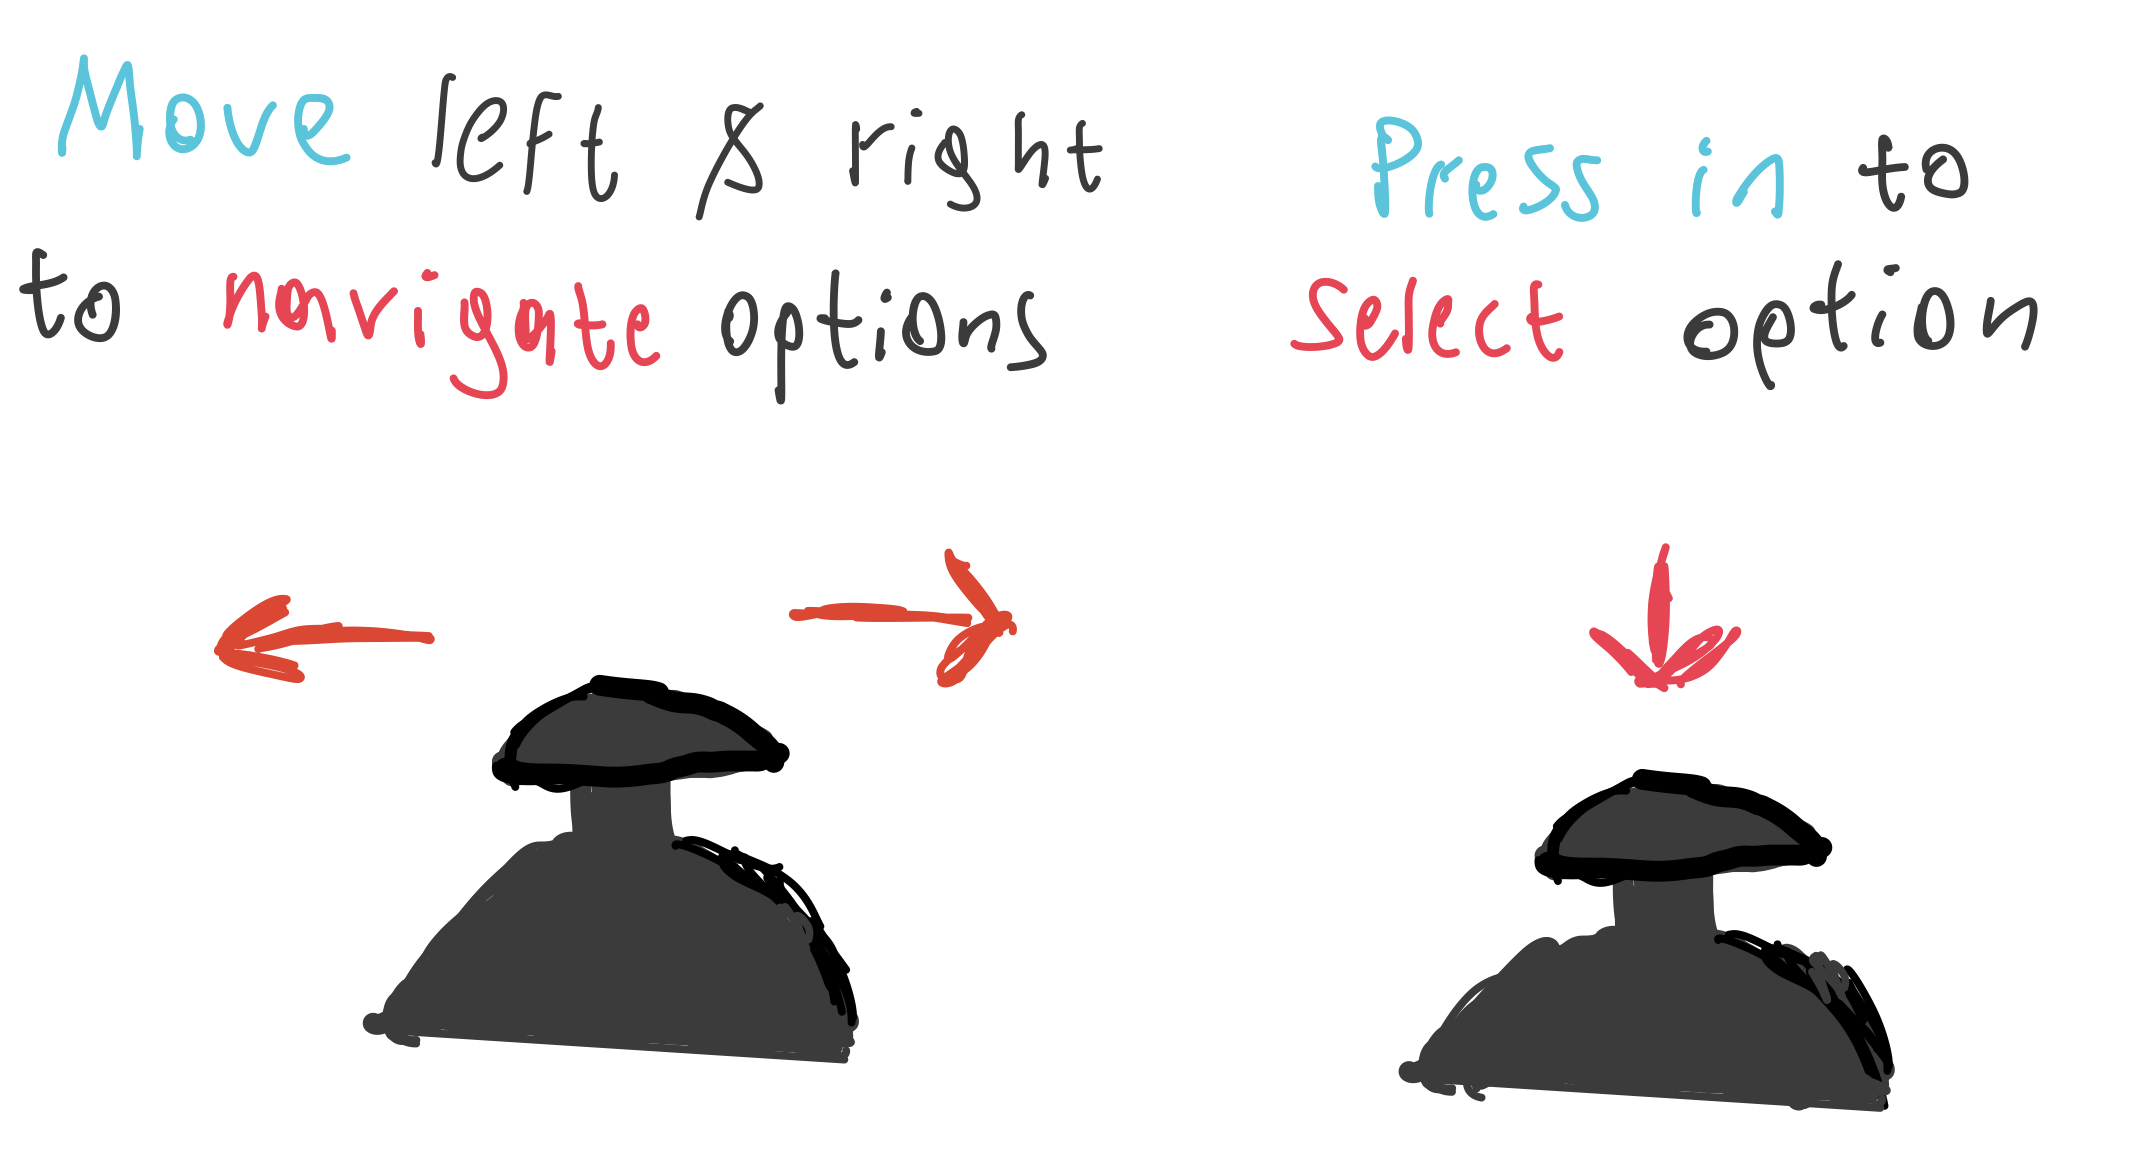 Move left & right
to navigate options
Press in to
select option